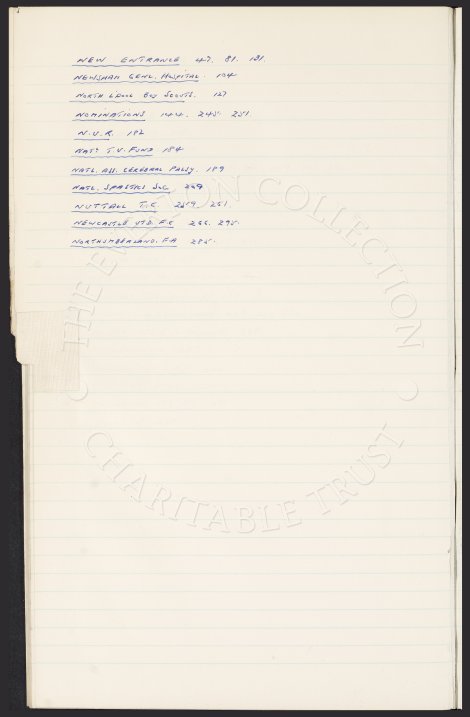 NEW ENTRANCE 47. 81. 131.
NEWSHAM GENL. HOSPITAL. 104
NORTH L'POOL BOY SCOUTS. 127
NOMINATIONS 144. 245. 251
N.U.R. 182
NATL T.V. FUND 184
NATL. ASS. CEREBRAL PALSY. 189
NATL. SPASTICS SOC.
NUTTALL T.E. 259. 261
NEWCASTLE UTD. F.C 266. 295.
NORTHUMBERLAND. F.A 285.
THE EVERTON COLLECTION
CHARITABLE TRUST